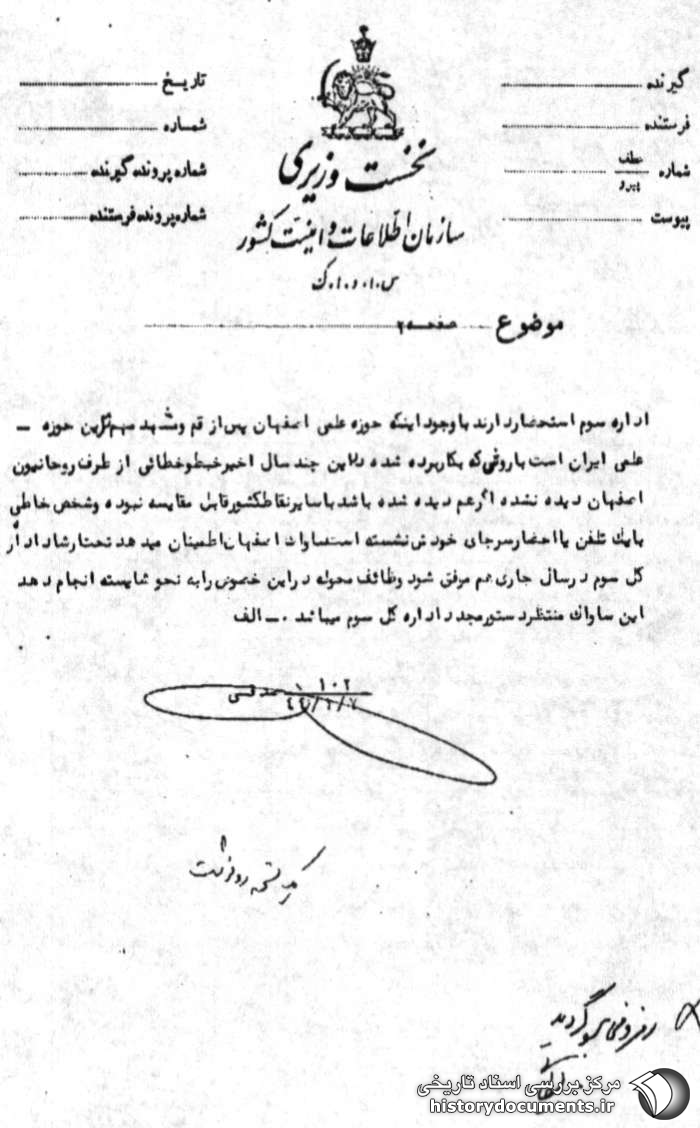 گیرنده
فرستنده
شماره عطف
پیرو
پیوست
تاریخ
شماره
شماره پرونده گیرنده
شماره پرونده فرستنده
نخست وزیری
سازمان اطلاعات و امنیت کشور
س.ا.و.ا.ک
موضوع صفحه ۲
اداره سوم استحضار دارند با وجود اینکه حوزه علمی اصفهان پس از قم و مشهد مهم ترین حوزه ـ
علمی ایران است با روشی که بکار برده شده در این چند سال اخیر خبط و خطائی از طرف روحانیون
اصفهان دیده نشده اگر هم دیده شده باشد با سایر نقاط کشور قابل مقایسه نبوده و شخص خاطی
با یک تلفن یا احضار سر جای خود ش نشسته است ساواک اصفهان اطمینان مید هد تحت ارشاد اداره
کل سوم در سال جاری هم موفق شود وظائف محوله در این خصوص را به نحو شایسته انجام دهد
این ساواک منتظر دستور مجدد اداره کل سوم میباشد .ـ الف
۱۰۲
رو نوشت
گردید
مرکز بررسی اسناد تاریخی
historydocuments.ir